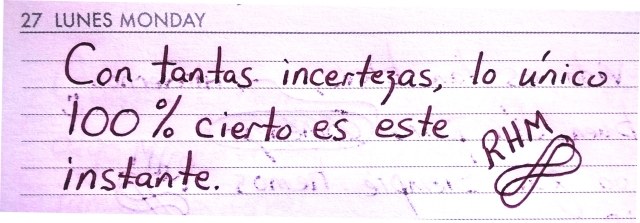 27 LUNES MONDAY
Con tantas incertezas, lo único
100% cierto es este
instante.
RHM